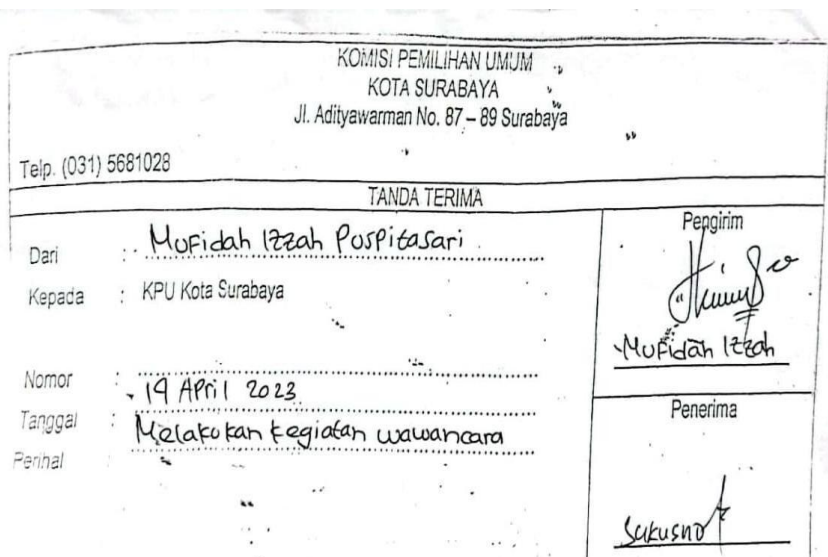 KOMISI PEMILIHAN UMUM
KOTA SURABAYA
Jl. Adityawarman No. 87 – 89 Surabaya
Telp. (031) 5681028
TANDA TERIMA
Dari : Mufidah Izzah Puspitasari
Kepada : KPU Kota Surabaya
Nomor :
Tanggal : 19 April 2023
Perihal : Melakukan kegiatan wawancara
Pengirim
Mufidah Izzah
Penerima
Sukusno